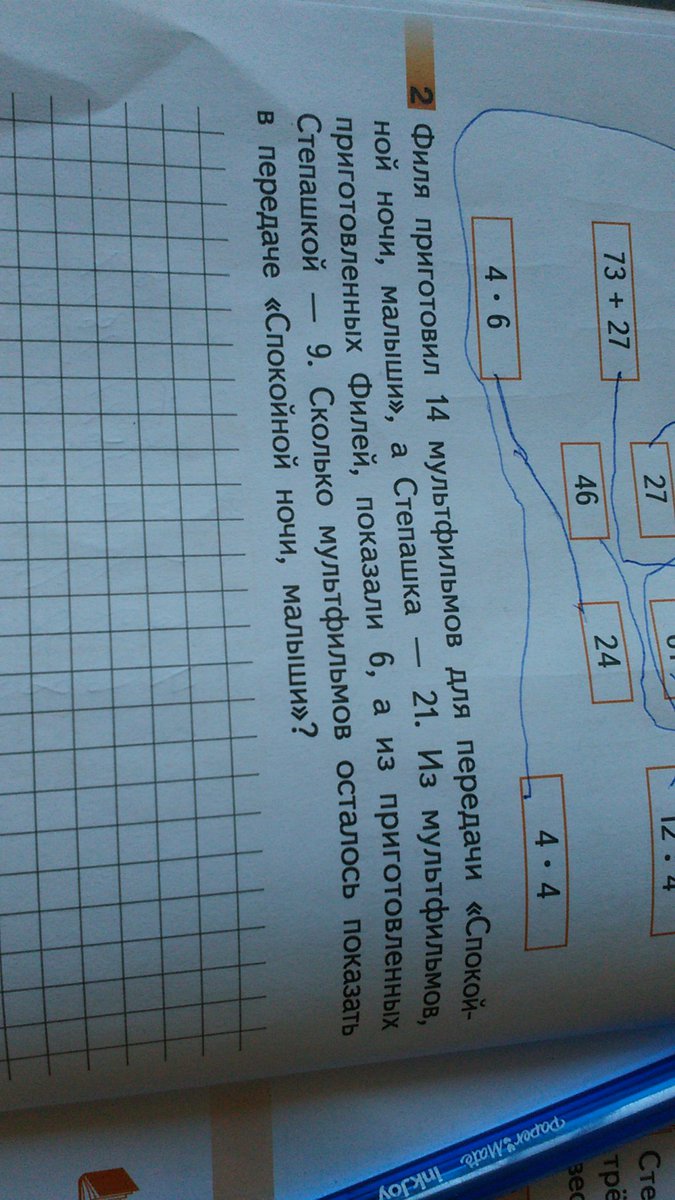 73 + 27
27
12 : 4
46
24
4 · 6
4 · 4
2 Филя приготовил 14 мультфильмов для передачи «Спокой-
ной ночи, малыши», а Степашка — 21. Из мультфильмов,
приготовленных Филей, показали 6, а из приготовленных
Степашкой — 9. Сколько мультфильмов осталось показать
в передаче «Спокойной ночи, малыши»?
Paper Mate InkJoy
Сте
трё